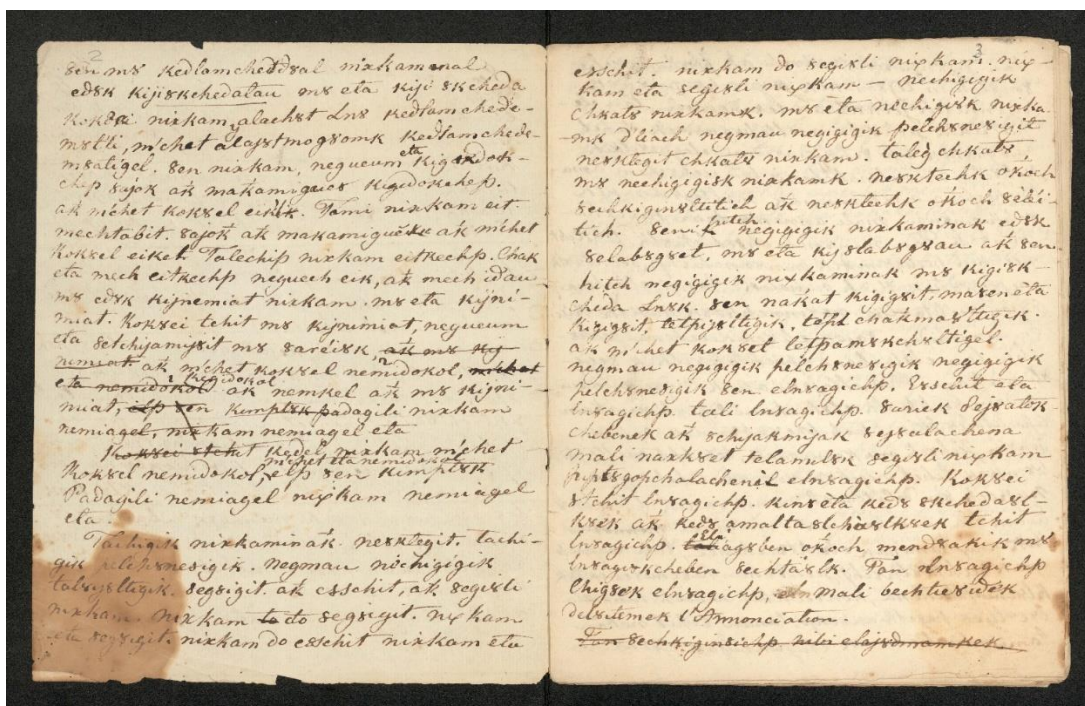 2
sen m8 Kedlamched8al nixkamenal
ed8k Kijiskchedatau m8 eta Kiji skcheda
Kok8ei nixkam, alach8t Ln8 Kedlamchede-
m8tli, m'chet alajstmogsomk Kedlamchede-
msatigel. sen nixkam, negueum eta Kigidok-
chip sajok ak makamigueok Kigidokchep.
ak m'chet kok8el eikik. Tami nixkam eit
mechtabit. sajok ak makamigueok ak m'chet
Kok8el eiket. Talechip nixkam eitkechp. Chak
eta mech eitkechp neguech eik, ak mech idau
m8 ed8k Kijnemiat nixkam. m8 eta Kijni-
miat. Kok8ei tchit m8 Kijnimiat, negueum
eta 8elchijamijsit m8 sareisk, ak m8 Kij
nemiat ak m'chet kok8el nemidokol, michet
eta nemidokol Kigidokol ak nemkel ak m8 Kijni-
miat, elp sen Kimpl8k padagili nixkam
nemiagel, nixkam nemiagel eta
Kok8ei 8tchit Kedel nixkam m'chet
Kok8el nemidokol, m'chet eta nemidokol elp sen Kimpl8k
Padagili nemiagel nixkam nemiagel
eta.
Tachigik nixkaminak. nesklegit. tachi-
gik pelchsnesigik. negmau nechigigik
tal8ijsltigik. segsigit. ak esschit, ak segisli
nixkam. nixkam to do segsigit. nixkam
eta segsigit. nixkam do esschit nixkam eta
3
esschit. nixkam do segisli nixkam. nix-
kam eta segisli nixkam — nechigigik
Chkats nixkamk. m8 eta nechigisk nixka-
mk d'liach negmau negigigik pelchsnesigit
nesklegit chkats nixkam. taleg chkats
m8 nechigigisk nixkamk. nesktechk okoch
sechkiginsltitich ak nesklechk okoch sebei-
tich. sen hitch negigigik nixkaminak ed8k
selabsgset. m8 eta Kijslabsgsau ak sen
hitch negigigik nixkaminak m8 Kigisk-
cheda Ln8k. sen nakat Kigigsit, masen eta
Kigigsit, tetpigsltigik. tetpi chakmasltigik.
ak m'chet kok8et letpamskchsltigel.
negmau negigigik pelchsnesigik negigigik
pelchsnesigik sen elnsagichp. Esschit eta
lnsagichp. tali lnsagichp. sariek 8ojsatok-
chebenek ak 8chijakmijak sejsulachena
mali naxkset telamilsk segisli nixkam
pipisgopchalachenil elnsagichp. Kok8ei
8tchit lnsagichp. Kins eta Keds skchedasl-
ksek ak Keds amaltaslchaslksek tchit
lnsagichp. Elu tasagsben okoch mendsakik m8
lnsagiskcheben sechtaslk. Pan elnsagichp
Chigsek elnsagichp, mali bechtiesidek
delsitimek l'Annonciation.
Tan sechkiginsichp nibi elajsdmamkek.